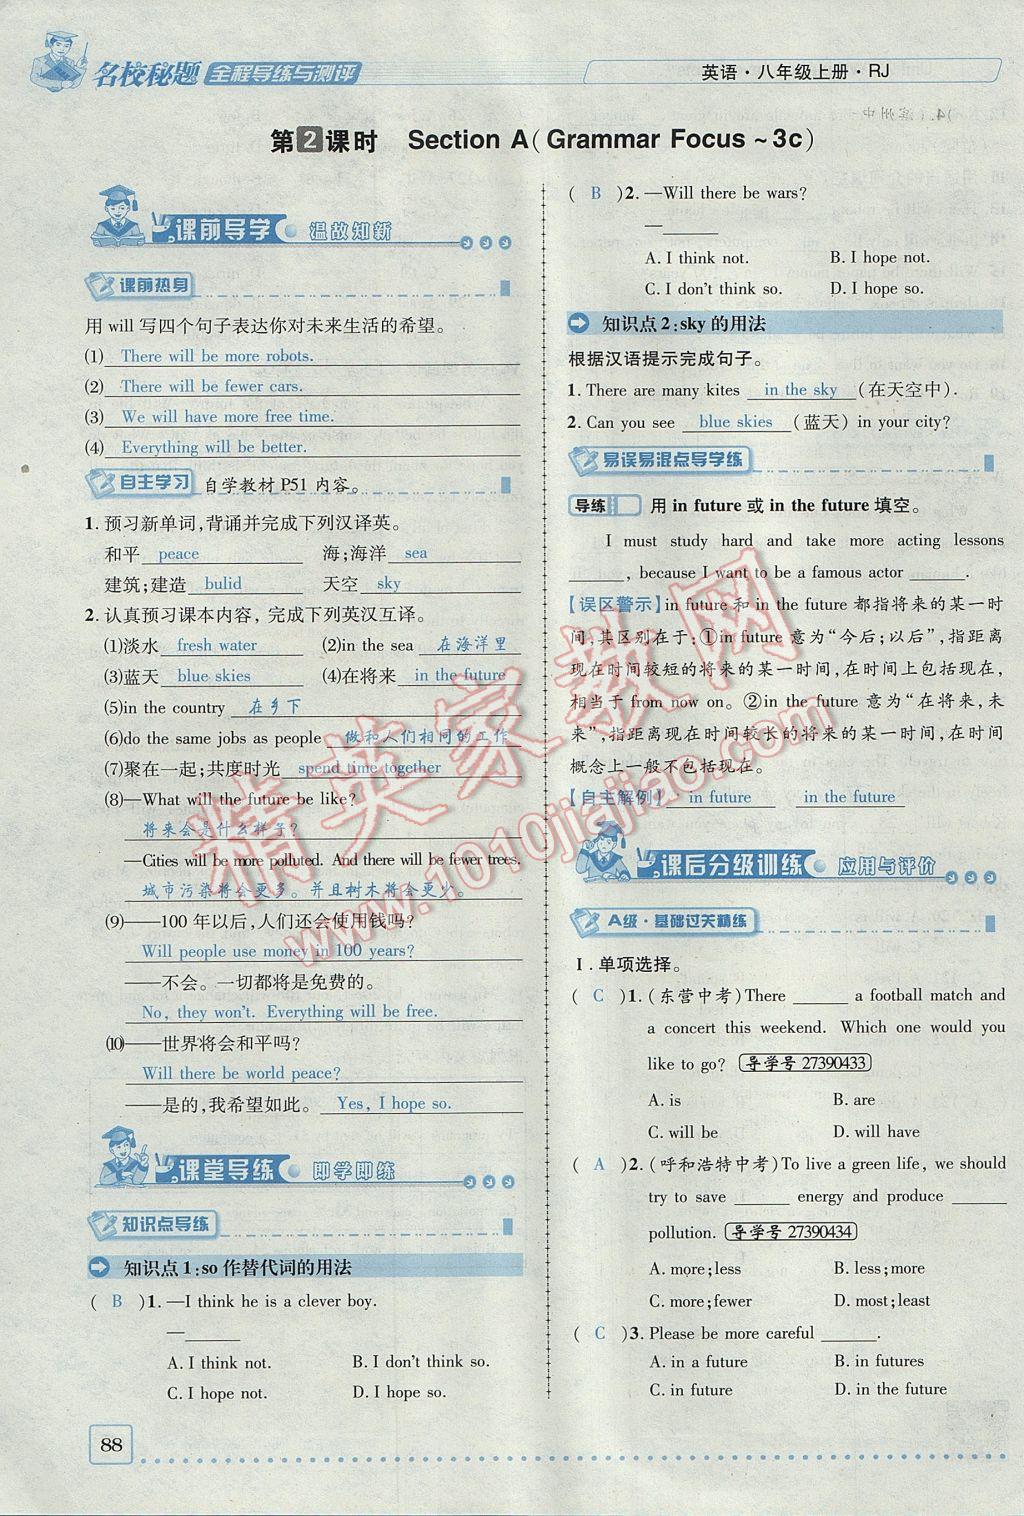 名校秘题 全程导练与测评
英语·八年级上册·RJ
第2课时 Section A(Grammar Focus~3c)
课前导学 温故知新
课前热身
用 will 写四个句子表达你对未来生活的希望。
(1) There will be more robots.
(2) There will be fewer cars.
(3) We will have more free time.
(4) Everything will be better.
自主学习 自学教材 P51 内容。
1. 预习新单词,背诵并完成下列汉译英。
和平 peace 海;海洋 sea
建筑;建造 bulid 天空 sky
2. 认真预习课本内容,完成下列英汉互译。
(1)淡水 fresh water (2)in the sea 在海洋里
(3)蓝天 blue skies (4)在将来 in the future
(5)in the country 在乡下
(6)do the same jobs as people 做和人们相同的工作
(7)聚在一起;共度时光 spend time together
(8)—What will the future be like?
将来会是什么样子?
—Cities will be more polluted. And there will be fewer trees.
城市污染将会更多。并且树木将会更少。
(9)——100 年以后,人们还会使用钱吗?
Will people use money in 100 years?
——不会。一切都将是免费的。
No, they won't. Everything will be free.
(10)——世界将会和平吗?
Will there be world peace?
——是的,我希望如此。 Yes, I hope so.
课堂导练 即学即练
知识点导练
知识点 1:so 作替代词的用法
( B )1. —I think he is a clever boy.
—______
A. I think not. B. I don't think so.
C. I hope not. D. I hope so.
88
( B )2. —Will there be wars?
—______
A. I think not. B. I hope not.
C. I don't think so. D. I hope so.
知识点 2:sky 的用法
根据汉语提示完成句子。
1. There are many kites in the sky (在天空中).
2. Can you see blue skies (蓝天) in your city?
易误易混点导学练
导练 用 in future 或 in the future 填空。
I must study hard and take more acting lessons
______, because I want to be a famous actor ______.
【误区警示】in future 和 in the future 都指将来的某一时
间,其区别在于:①in future 意为“今后;以后”,指距离
现在时间较短的将来的某一时间,在时间上包括现在,
相当于 from now on。②in the future 意为“在将来,未
来”,指距离现在时间较长的将来的某一时间,在时间
概念上一般不包括现在。
【自主解例】 in future in the future
课后分级训练 应用与评价
A级·基础过关精练
Ⅰ. 单项选择。
( C )1. (东营中考)There ______ a football match and
a concert this weekend. Which one would you
like to go? 导学号 27390433
A. is B. are
C. will be D. will have
( A )2. (呼和浩特中考)To live a green life, we should
try to save ______ energy and produce ______
pollution. 导学号 27390434
A. more;less B. less;more
C. more;fewer D. most;least
( C )3. Please be more careful ______.
A. in a future B. in futures
C. in future D. in the future
精英家教网
www.1010jiajiao.com